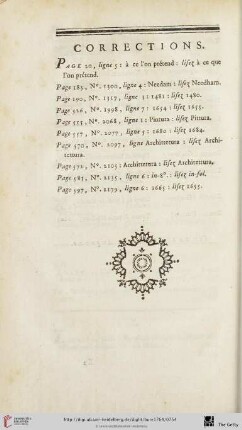 CORRECTIONS.
PAGE 20, ligne 5 : à te l'on prétend : lisez à ce que
l'on prétend.
Page 285, N°. 1300, ligne 4 : Needom : lisez Needham.
Page 290, N°. 1319, ligne 3 : 1481 : lisez 1480.
Page 526, N°. 1998, ligne 7 : 1654 : lisez 1655.
Page 555, N°. 2068, ligne 1 : Pintura : lisez Pittura.
Page 557, N°. 2077, ligne 5 : 1680 : lisez 1684.
Page 570, N°. 2097, ligne Architterura : lisez Archi-
tettura.
Page 572, N°. 2103 : Architterera : lisez Architettura.
Page 581, N°. 2135, ligne 6 : in-8°. : lisez in-fol.
Page 597, N°. 2179, ligne 6 : 1665 : lisez 1655.
The Getty